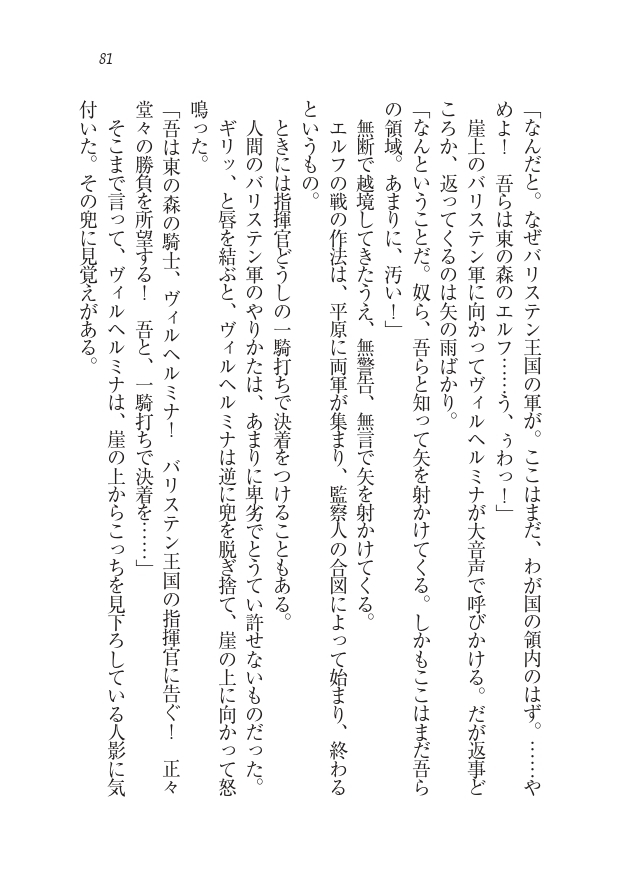 81
「なんだと。なぜバリステン王国の軍が。ここはまだ、わが国の領内のはず。……や
めよ！　吾らは東の森のエルフ……う、ぅわっ！」
　崖上のバリステン軍に向かってヴィルヘルミナが大音声で呼びかける。だが返事ど
ころか、返ってくるのは矢の雨ばかり。
「なんということだ。奴ら、吾らと知って矢を射かけてくる。しかもここはまだ吾ら
の領域。あまりに、汚い！」
　無断で越境してきたうえ、無警告、無言で矢を射かけてくる。
　エルフの戦の作法は、平原に両軍が集まり、監察人の合図によって始まり、終わる
というもの。
　ときには指揮官どうしの一騎打ちで決着をつけることもある。
　人間のバリステン軍のやりかたは、あまりに卑劣でとうてい許せないものだった。
　ギリッ、と唇を結ぶと、ヴィルヘルミナは逆に兜を脱ぎ捨て、崖の上に向かって怒
鳴った。
「吾は東の森の騎士、ヴィルヘルミナ！　バリステン王国の指揮官に告ぐ！　正々
堂々の勝負を所望する！　吾と、一騎打ちで決着を……」
　そこまで言って、ヴィルヘルミナは、崖の上からこっちを見下ろしている人影に気
付いた。その兜に見覚えがある。